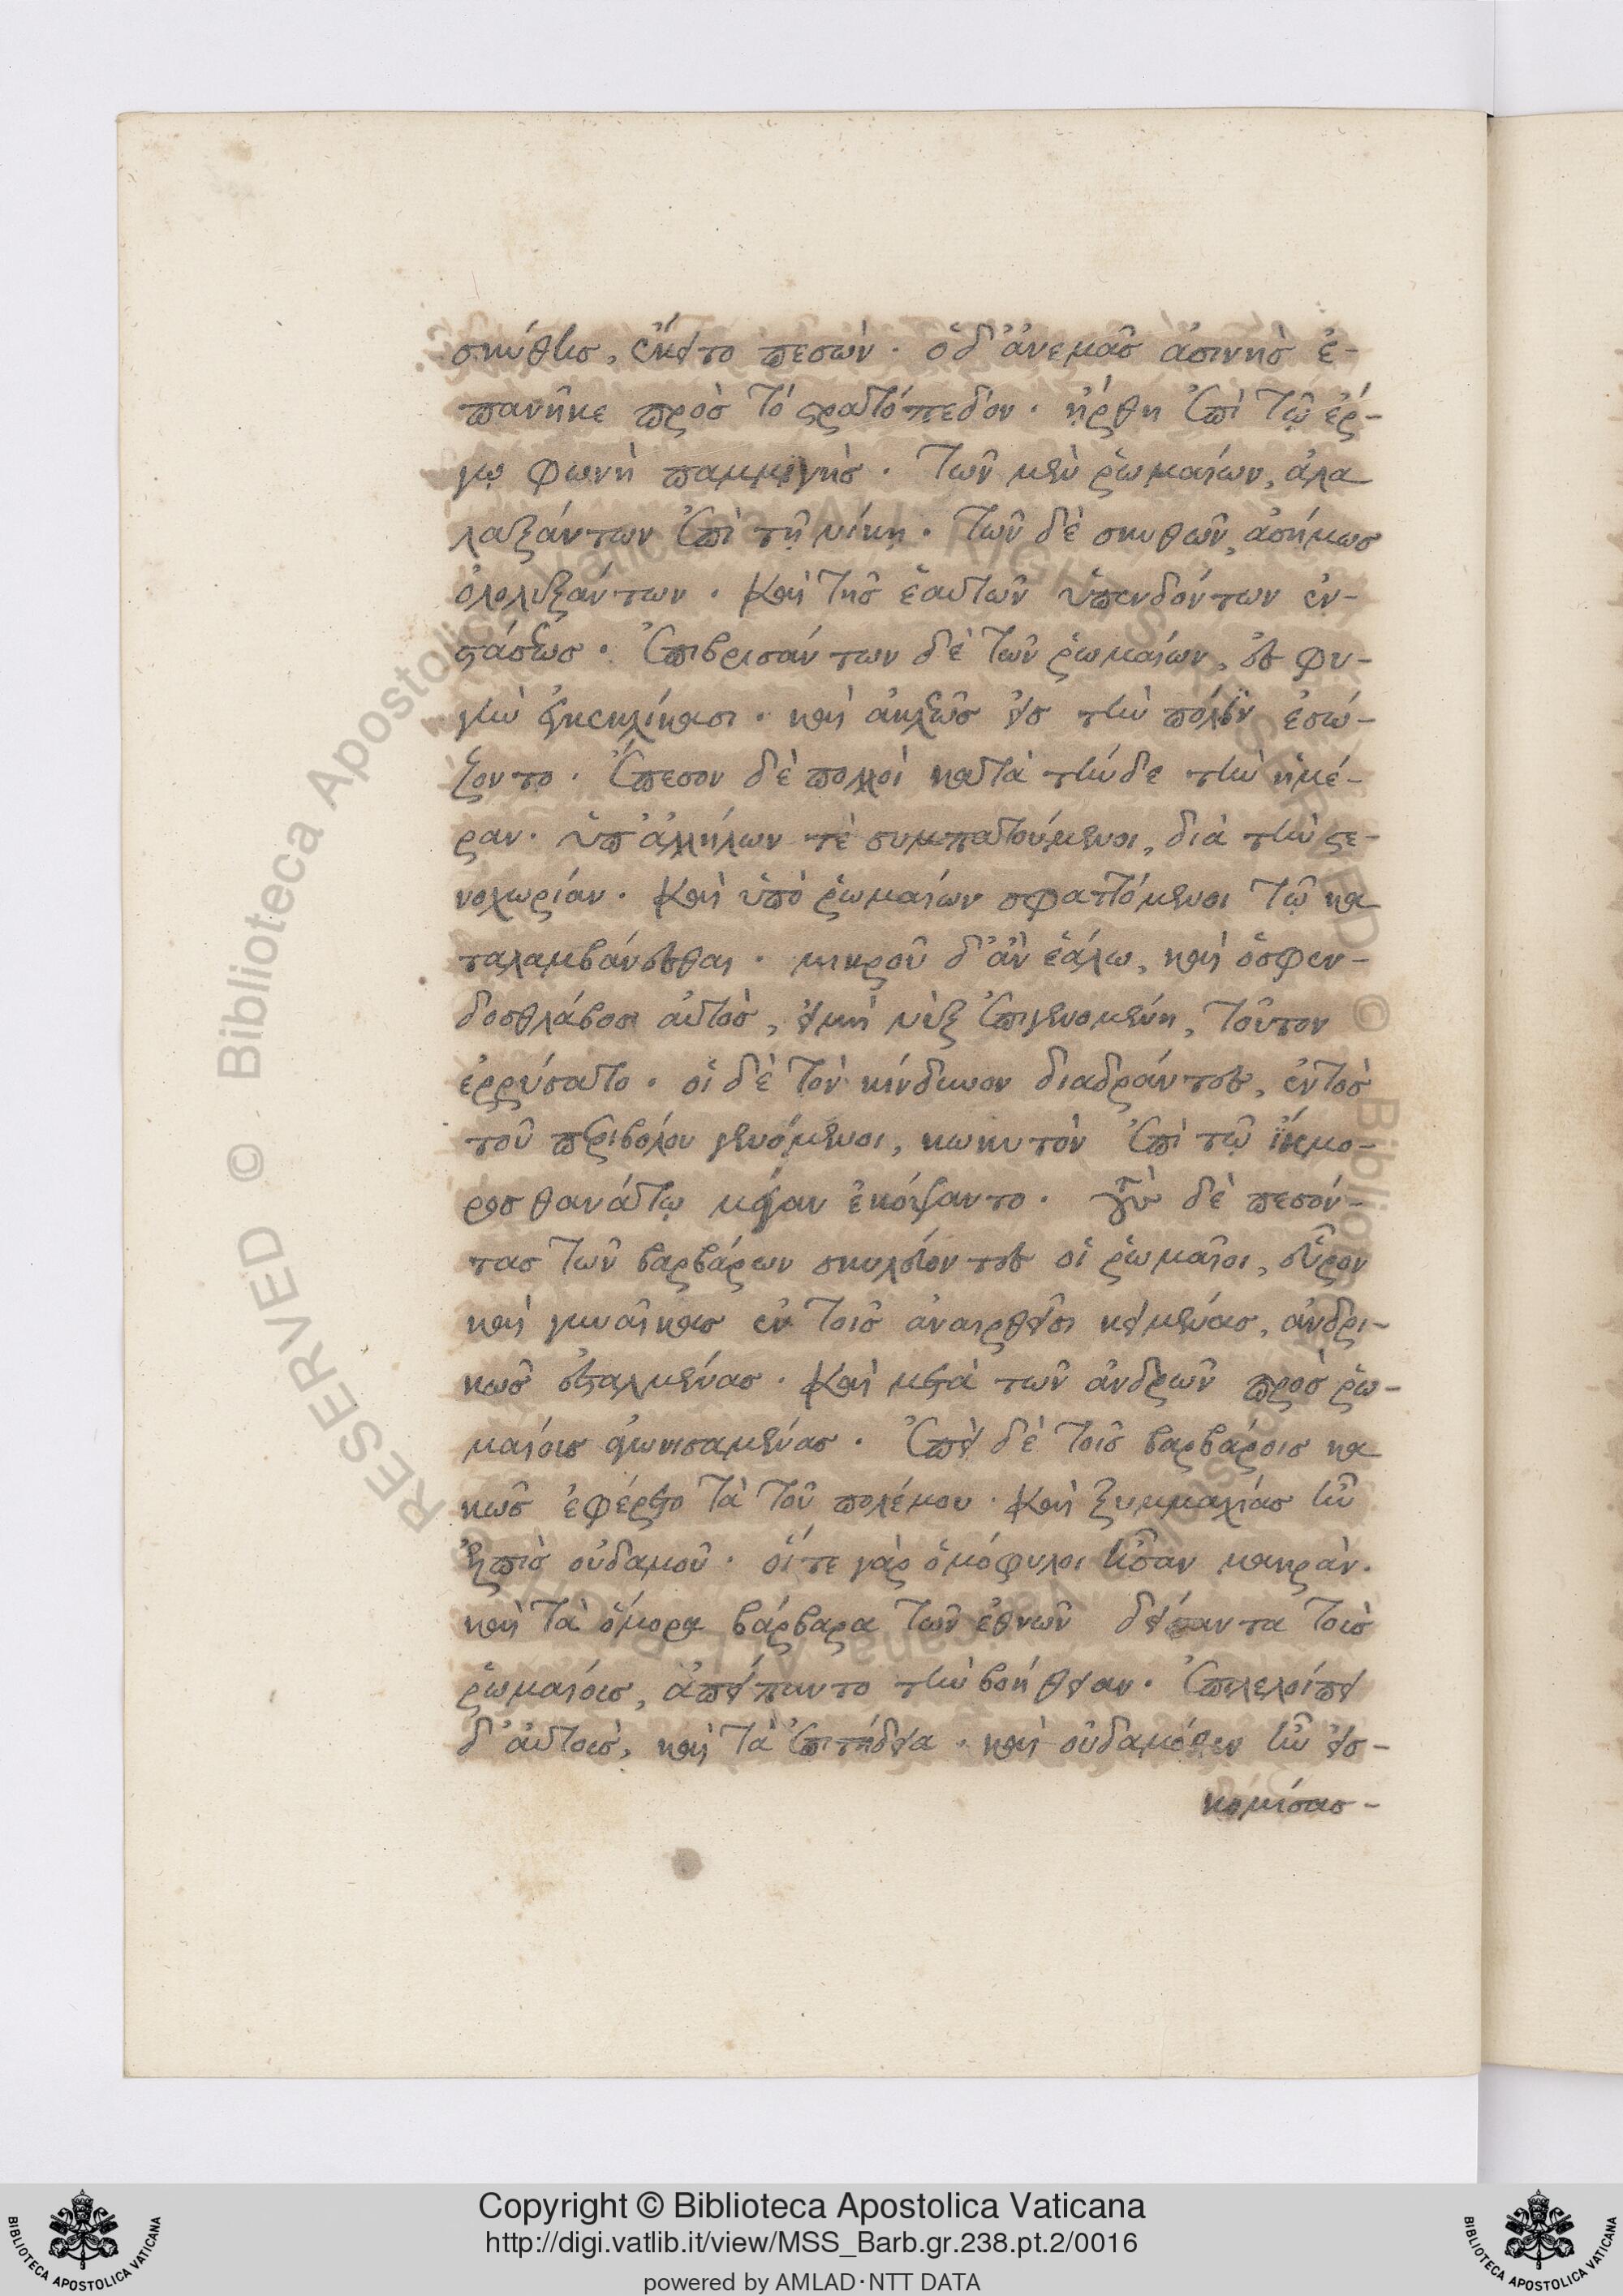 σκύθης, ἔκειτο πεσών. ὁ δ' ἀνεμᾶς ἀσινὴς ἐ-
πανῆκε πρὸς τὸ στρατόπεδον. ἤρθη ἐπὶ τῷ ἔρ-
γῳ φωνὴ παμμιγὴς. τῶν μὲν ῥωμαίων, ἀλα
λαξάντων ἐπὶ τῇ νίκῃ. τῶν δὲ σκυθῶν, ἀσήμως
ὀλολυξάντων. καὶ τῆς ἑαυτῶν ὑπενδόντων ἐν-
στάσεως. ἐπιβρισάντων δὲ τῶν ῥωμαίων, ἐς φυ-
γὴν ἐκκεκλίκασι. καὶ ἀκλεῶς εἰς τὴν πόλιν ἐσώ-
ζοντο. ἔπεσον δὲ πολλοὶ κατὰ τήνδε τὴν ἡμέ-
ραν. ὑπ' ἀλλήλων τὲ συμπατούμενοι, διὰ τὴν στε-
νοχωρίαν. καὶ ὑπὸ ῥωμαίων σφαττόμενοι τῷ κα
ταλαμβάνεσθαι. μικροῦ δ' ἂν ἑάλω, καὶ ὁ σφεν-
δοσθλάβος αὐτὸς, εἰ μὴ νὺξ ἐπιγενομένη, τοῦτον
ἐρρύσατο. οἱ δὲ τὸν κίνδυνον διαδράντες, ἐντὸς
τοῦ περιβόλου γενόμενοι, κωκυτὸν ἐπὶ τῷ ἴκμο-
ρος θανάτῳ μέγαν ἐκόψαντο. τοὺς δὲ πεσόν-
τας τῶν βαρβάρων σκυλεύοντες οἱ ῥωμαῖοι, εὗρον
καὶ γυναῖκας ἐν τοῖς ἀναιρεθεῖσι κειμένας, ἀνδρι-
κῶς ἐσταλμένας. καὶ μετὰ τῶν ἀνδρῶν πρὸς ῥω-
μαίοις ἀγωνισαμένας. ἐπεὶ δὲ τοῖς βαρβάροις κα
κῶς ἐφέρετο τὰ τοῦ πολέμου. καὶ ξυμμαχίας ἦν
ἐλπὶς οὐδαμοῦ. οἵ τε γὰρ ὁμόφυλοι ἦσαν μακρὰν.
καὶ τὰ ὅμορα βάρβαρα τῶν ἐθνῶν δείσαντα τοὺς
ῥωμαίους, ἀπείπαντο τὴν βοήθειαν. ἐπιλελοίπει
δ' αὐτοὺς, καὶ τὰ ἐπιτήδεια. καὶ οὐδαμόθεν ἦν εἰσ-
κομίσασ-
Copyright © Biblioteca Apostolica Vaticana
http://digi.vatlib.it/view/MSS_Barb.gr.238.pt.2/0016
powered by AMLAD·NTT DATA